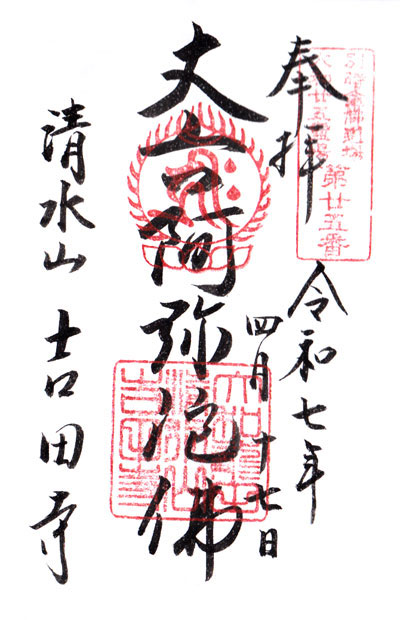 奉拝
第廿五番
令和七年
四月十七日
丈六阿弥陀佛
清水山 吉田寺